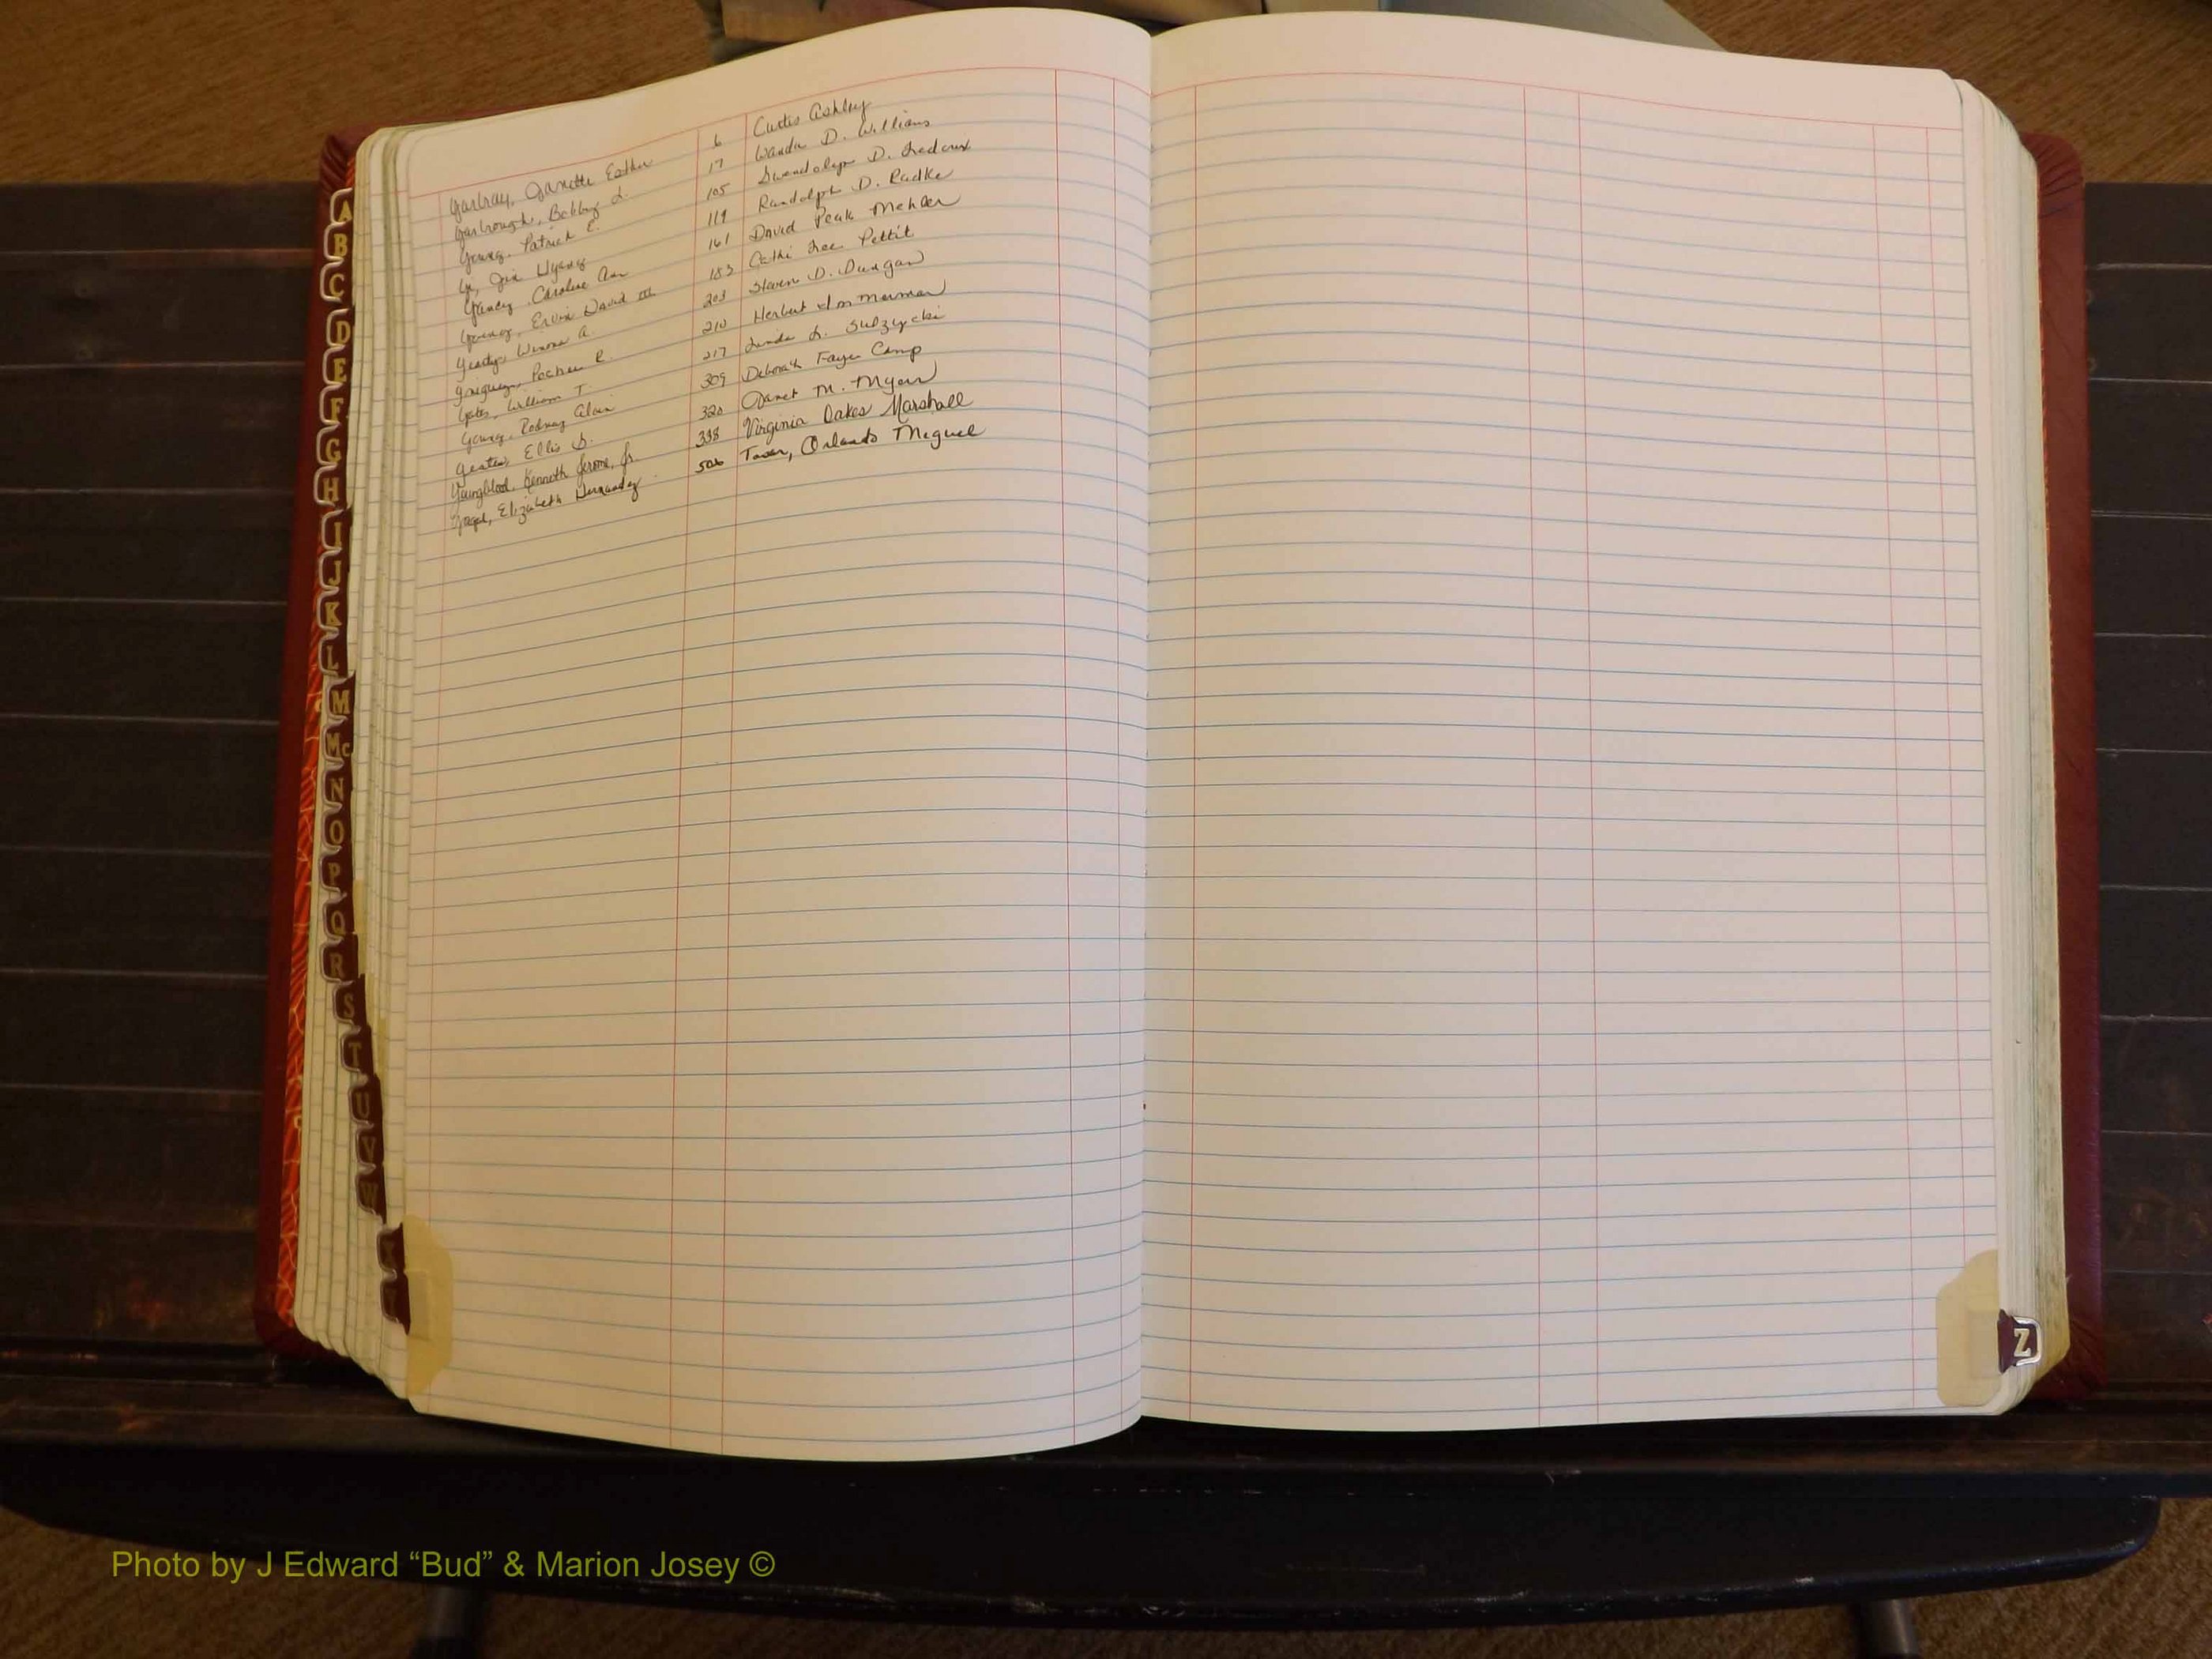 Yarbray, Janette Esther 6 Curtis Ashley
Yarbrough, Bobby L. 17 Wanda D. Williams
Young, Patrick E. 105 Gwendolyn D. Ledoux
Yi, Jin Hyang 119 Randolph D. Radke
Yancey, Caroline Ann 161 David Peak
Young, Ervin David III 183 Cathi Lee Pettit
Winona A. 203 Steven D. Dungan
R. 210 Herbert Immerman
Yates, William T. 217 Linda L. Sulzycki
Young, Rodney Alan 309 Deborah Faye Camp
Yeates, Ellis B. 320 Janet M. Myers
Youngblood, Kenneth Jerome, Jr. 338 Virginia Oakes Marshall
Elizabeth Hernandez 506 Orlando Miguel
A
B
C
D
E
F
G
H
I
J
K
L
M
Mc
N
O
P
Q
R
S
T
U
V
W
Y
Z
Photo by J Edward “Bud” & Marion Josey ©